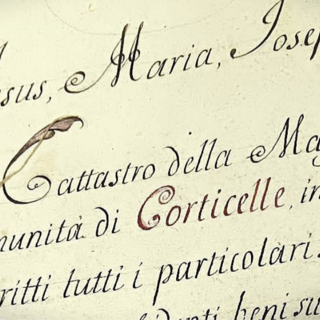 Jesus, Maria, Josep
Cattastro della Mag
munità di Corticelle, in
ritti tutti i particolari
denti beni su